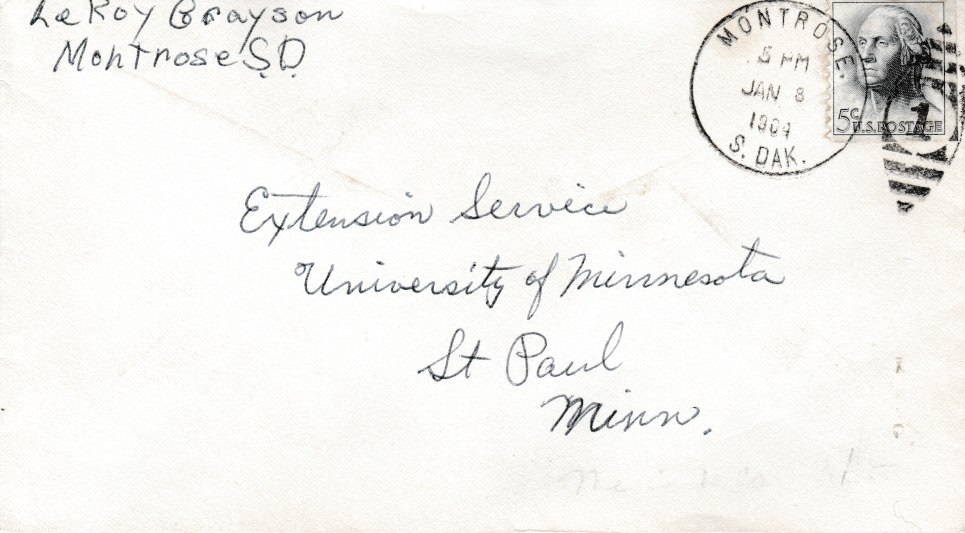 LeRoy Grayson
Montrose S.D.
MONTROSE.
5 PM
JAN 8
1964
S. DAK.
5¢
U.S. POSTAGE
1
Extension Service
University of Minnesota
St Paul
Minn.